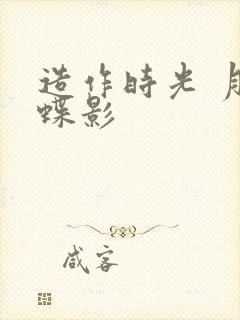 造作時光 月
蝶影
咸客